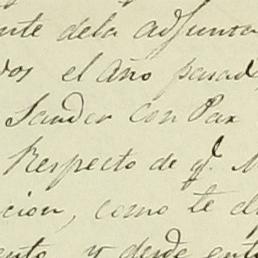 nte dela adjunta
dos el Año pasad
Sander con Pax
Respecto de q.
cion, como te di
ento, y desde ent